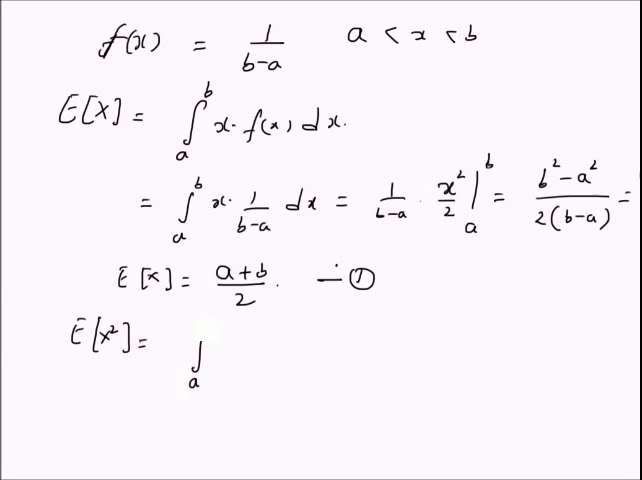 f(x) = 1/(b-a) a < x < b
E[X] = ∫_a^b x · f(x) dx.
= ∫_a^b x · 1/(b-a) dx = 1/(b-a) · x²/2 |_a^b = (b² - a²)/(2(b-a)) =
E[x] = (a+b)/2. — ①
E[x²] = ∫_a